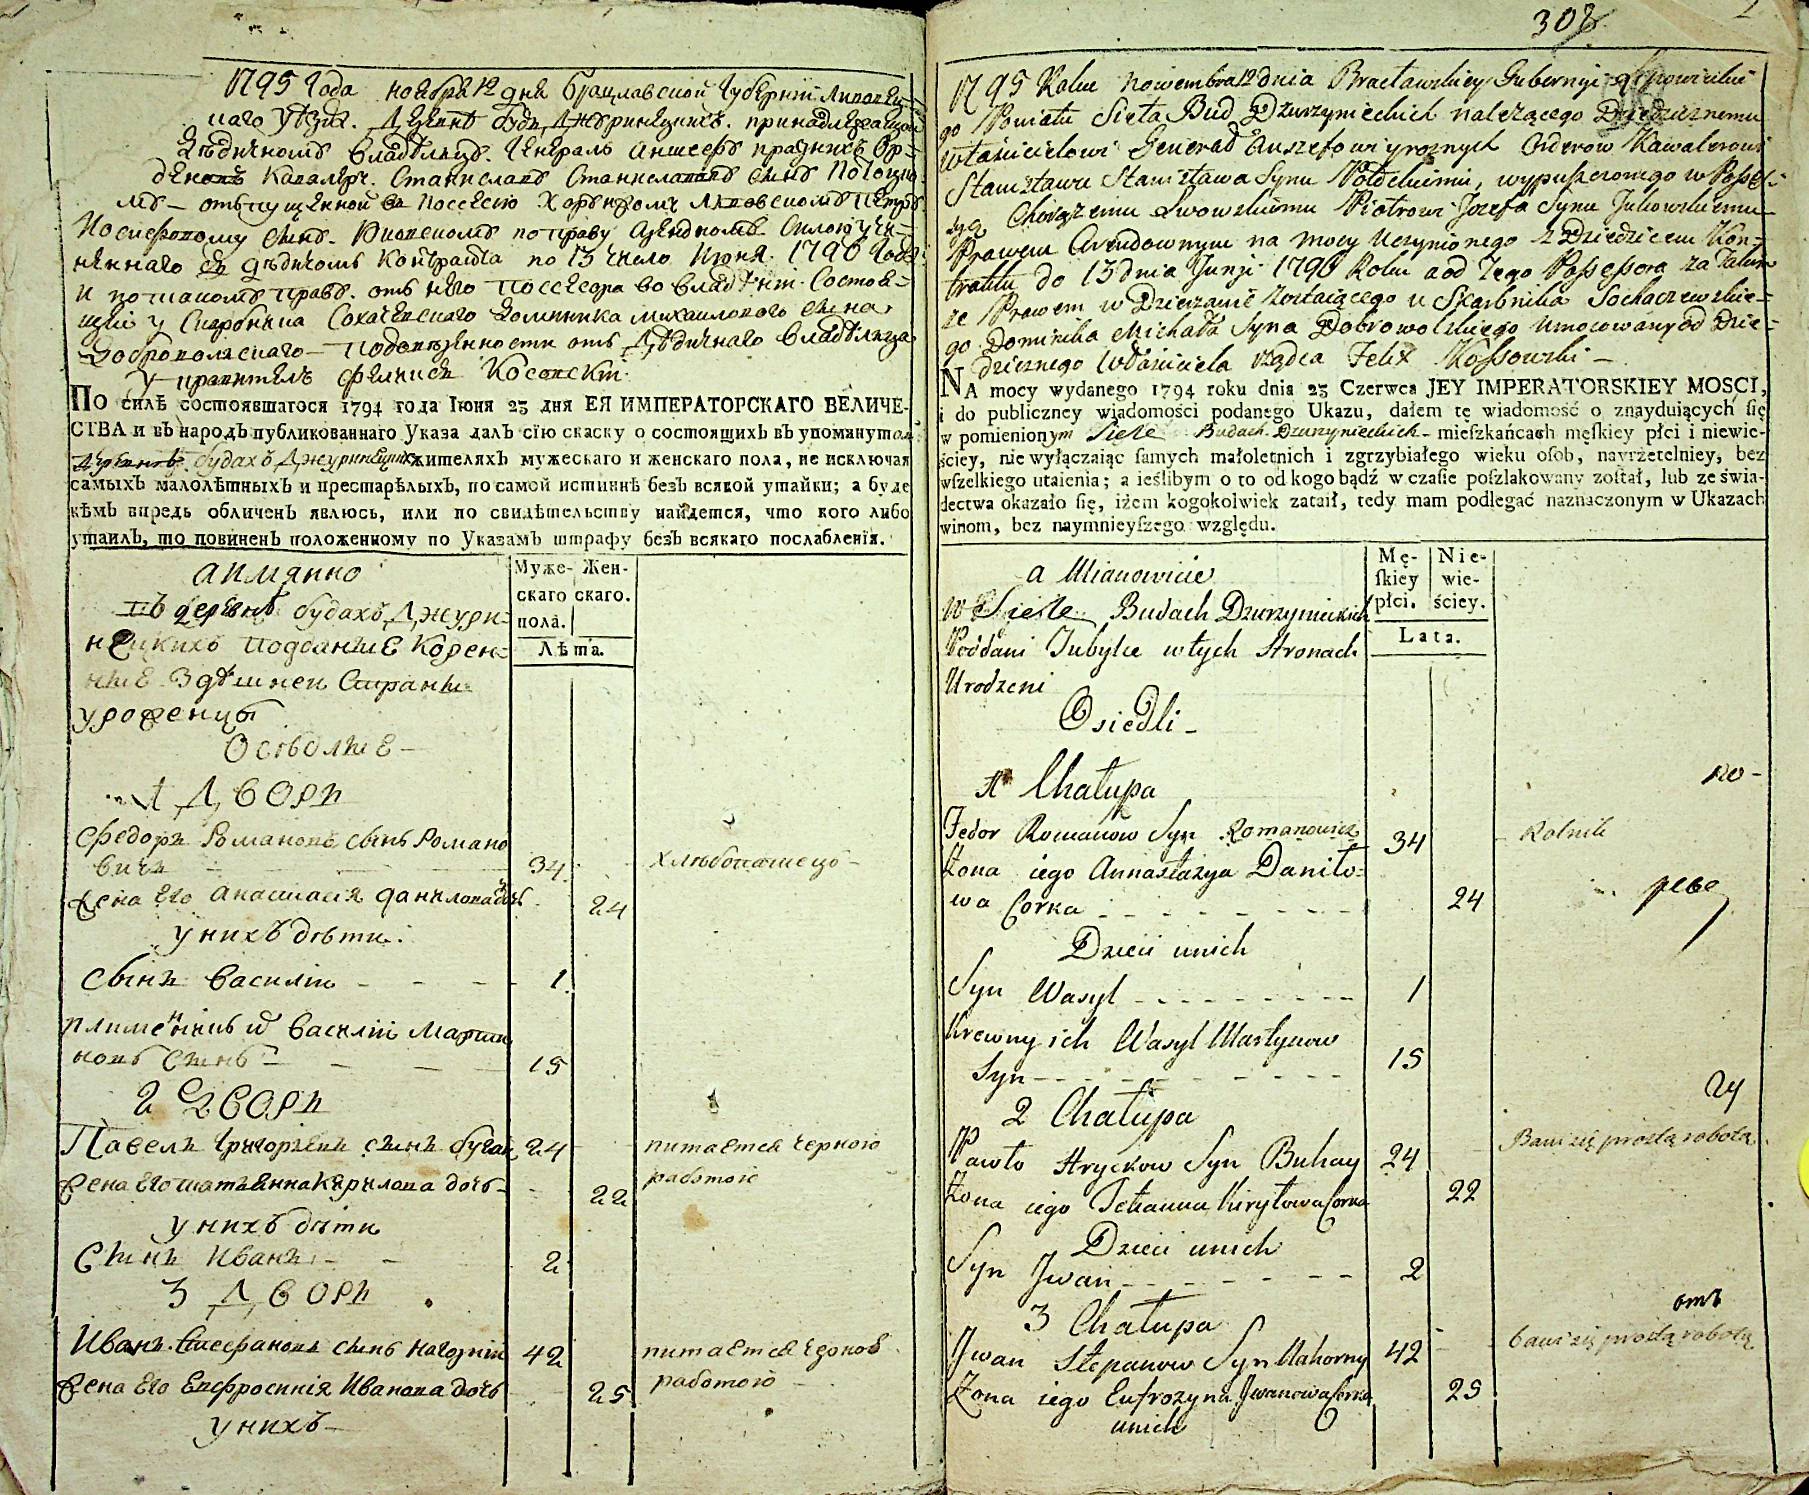 1795 Года ноября 12 дня Брацлавской Губернии Липовец-
каго уезда. Деревне Буды Джуринецкихъ. принадлежащей
Дедичномъ владельцу. Генералъ Аншефъ разныхъ Ор-
деновъ Кавалеру. Станиславъ Станиславовъ сынъ Потоцко-
мъ – отпущенной въ поссесию Хоронжому Львовскомъ Петръ
Иосифовому сынъ. по праву арендномъ силою учи-
ненного съ дедичомъ контракта по 13 число Июня. 1796 Года
и по такомъ праве. отъ него поссесора во владении состоя-
щей у Скарбника Сохачевского Доминика Михайлового сына
Добровольского – отъ Дедичного владельца
управитель Феликсъ Косовски.
ПО силѣ состоявшагося 1794 года Іюня 23 дня ЕЯ ИМПЕРАТОРСКАГО ВЕЛИЧЕ-
СТВА и въ народъ публикованнаго Указа далъ сїю скаску о состоящихъ въ упомянутой
деревнѣ Будахъ Джуринецкихъ жителяхъ мужескаго и женскаго пола, не исключая
самыхъ малолѣтныхъ и престарѣлыхъ, по самой истиннѣ безъ всякой утайки; а буде
кѣмъ впредь обличенъ явлюсь, или по свидѣтельству найдется, что кого либо
утаилъ, то повиненъ положенному по Указамъ штрафу безъ всякаго послабленїя.
Муже-
скаго
пола.
Жен-
скаго.
Лѣта.
а имянно
въ деревнѣ Будахъ Джури-
нецкихъ подданые корен-
ные здѣшней стараны
уроженцы
Осѣдлые –
1 Дворъ
Федоръ Романовъ сынъ Романо
вичъ 34 хлѣбопашецъ –
жена его Анастасія Данилова дочь 24
у нихъ дѣти.
сынъ Василій – – – 1
племенникъ их Василій Марти
новъ сынъ – – – 15
2 Дворъ
Павелъ Григорьевъ сынъ Бугай 24 питается черною
работою
жена его татьянна Кирилова дочь – 22
у нихъ дѣти
сынъ Иванъ – – 2
3 Дворъ
Иванъ Степановъ сынъ Нагорній 42 питается черною
работою
жена его Евфросинія Иванова дочь 25
у нихъ –
308
1795 Roku Nowembra 12 dnia Bracławskiey Gubernyi Lipowieckie
go Powiatu Sieła Bud Dzurzynieckich należącego Dziedzicznemu
włascicielowi Generał Anszefowi yroznych Orderow Kawalerowi
Stanisławu Stanisława Synu Potockiemu, wypuszczonego w Posse-
syą Chorążemu Lwowskiemu Piotrowi Jozefa Synu Jukowskiemu
Prawem Arendownym na mocy uczynionego z Dziedzicem Kon-
traktu do 13 dnia Junji 1796 Roku a od tego Possessora za takim
że Prawem w Dzierzawie zostaiącego u Skarbnika Sochaczewskie-
go Dominika Michała Syna Dobrowolskiego umocowany od Dzie-
dzicznego Właściciela rządca Felix Kossowski –
NA mocy wydanego 1794 roku dnia 23 Czerwca JEY IMPERATORSKIEY MOSCI,
i do publiczney wiadomości podanego Ukazu, dałem tę wiadomość o znayduiących się
w pomienionym Siele Budach Dzurzynieckich – mieſzkańcach męſkiey płci i niewie-
ściey, nie wyłączaiąc ſamych małoletnich i zgrzybiałego wieku oſob, nayrzetelniey, bez
wſzelkiego utaienia; a ieślibym o to od kogo bądź w czaſie poſzlakowany zoſtał, lub ze świa-
dectwa okazało się, iżem kogokolwiek zataił, tedy mam podlegać naznaczonym w Ukazach
winom, bez naymnieyſzego względu.
Mę-
ſkiey
płci.
Nie-
wie-
ściey.
Lata.
a Mianowicie
w Siele Budach Dzurzynieckich
Poddani Tubylce w tych Stronach
Urodzeni
Osiedli –
1 Chałupa
по-
Fedor Romanow Syn Romanowicz 34 – Rolnik
Zona iego Annastazya Daniło-
wa Corka – – – – 24
Dzieci unich
Syn Wasyl – – – – 1
Krewny ich Wasyl Martynow
Syn – – – – 15
2 Chałupa
Pawło Hryckow Syn Buhay 24 Bawi się prostą robotą
Zona iego Tetianna Kiryłowa Corka 22
Dzieci unich
Syn Jwan – – – – 2
3 Chałupa
отъ
Jwan Stepanow Syn Nahorny 42 bawi się prostą robotą
Zona iego Eufrozyna Jwanowa Corka 25
unich